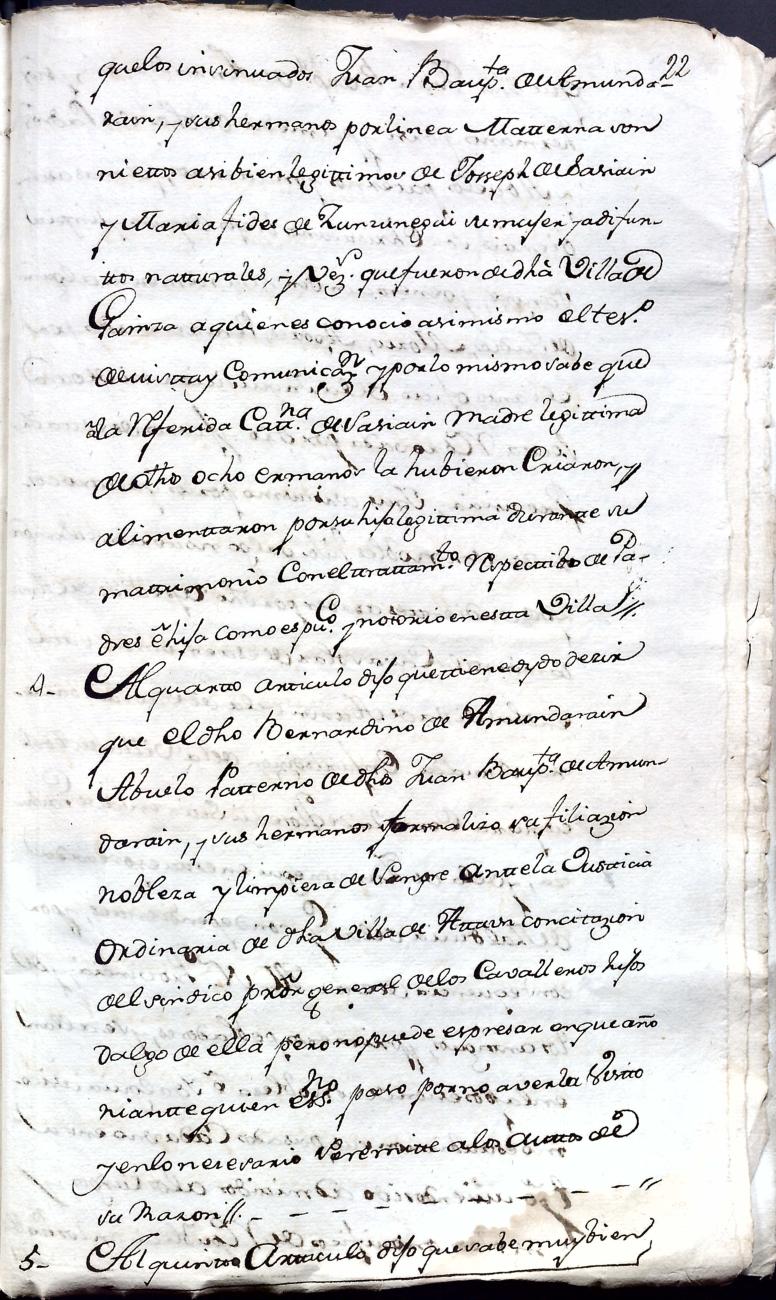 22
que los insinuados Juan Baup.ta de Amunda-
rain, y sus hermanos por linea Matterna son
niettos asi bien legittimos de Joseph de Sasiain
y Maria fides de Zunzunegui su muger ya difun-
ttos natturales, y Vez.s que fueron de dha Villa de
Gainza a quienes conocio asimismo el tes.o
de vistta y Comunicaz.n y por lo mismo sabe que
a la Referida Catt.na de Sasiain Madre legittima
de dhos ocho ermanos la hubieron Criaron, y
alimenttaron por su hija legittima durantte su
mattrimonio Con el trattam.to Respecttibo de Pa-
dres e hija como es pu.co y notorio en estta Villa //.
4- Al quartto articulo dijo que ttiene oydo dezir
que el dho Bernardino de Amundarain
Abuelo Patterno de dho Juan Baup.ta de Amun-
darain, y sus hermanos formalizo su filiazion
nobleza y limpieza de Sangre antte la Justicia
Ordinaria de dha Villa de Attaun con citazion
del sindico pror general de los Cavalleros hijos
dalgo de ella pero no puede espresar en que año
ni antte quien ess.no paso por no averla Visto
y en lo nezesario Se remitte a los auttos de
su Razon //. - - - - - - - - //
5- Al quintto Articulo dijo que sabe muy bien